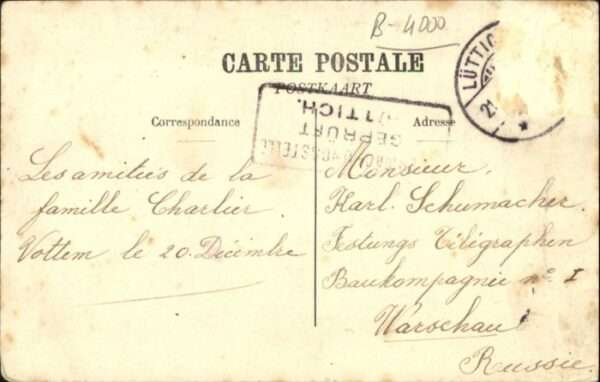 B-4000
CARTE POSTALE
POSTKAART
Correspondance
Adresse
LÜTTIC
21
GEPRÜFT
LÜTTICH.
Les amitiés de la
famille Charlier
Vottem le 20 Décembre
Monsieur
Karl. Schumacher.
Festungs Téligraphen
Baukompagnie n° I
Warschau
Russie.